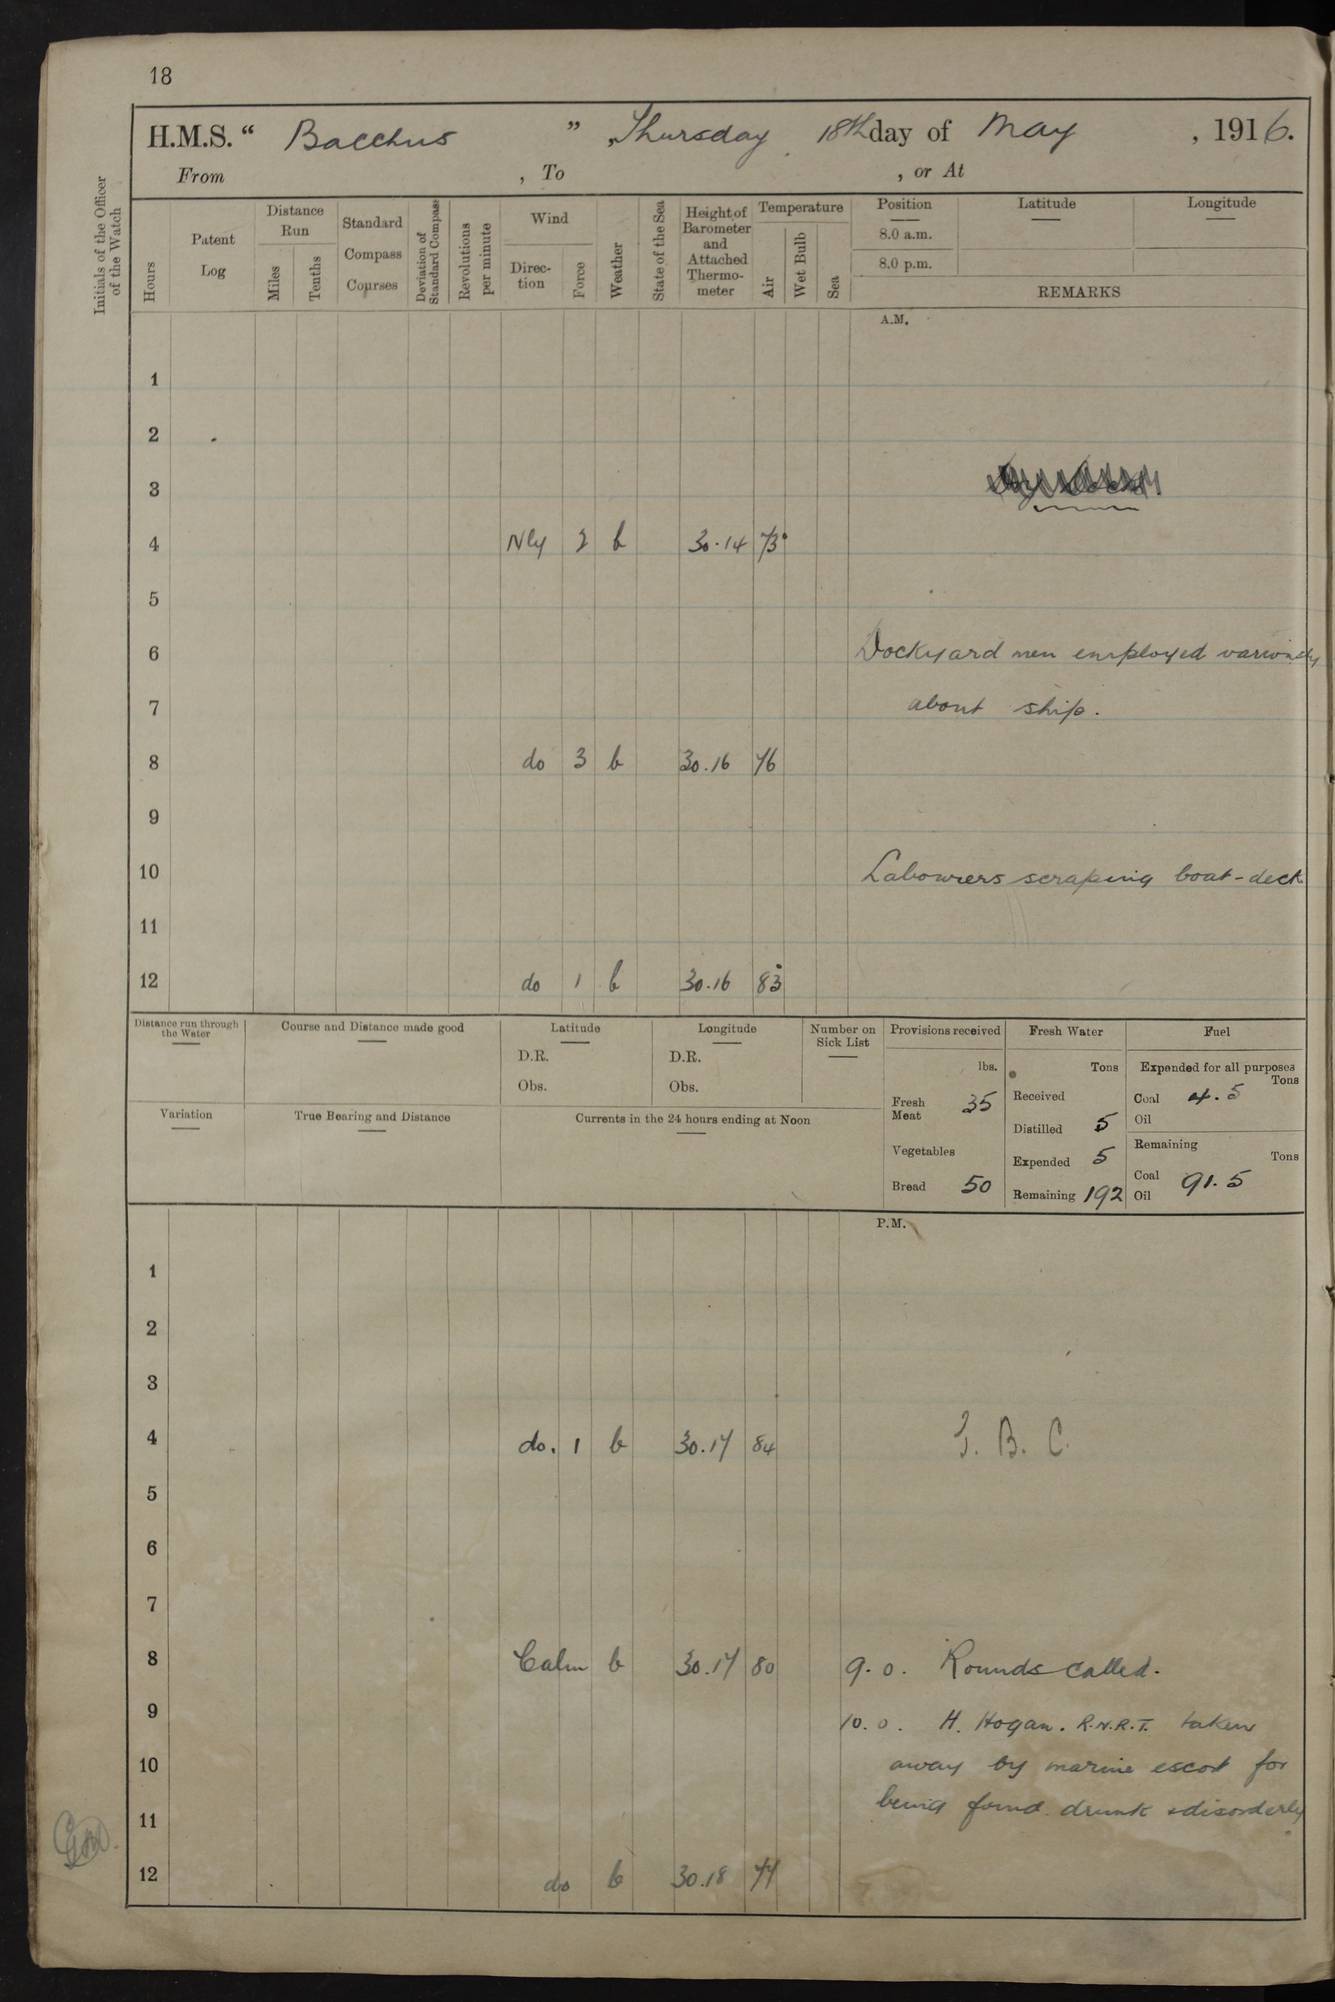 18
H.M.S. “ Bacchus ” , Thursday 18th day of May , 1916.
From , To , or At
Initials of the Officer of the Watch
Hours
Patent Log
Distance Run
Miles
Tenths
Standard Compass Courses
Deviation of Standard Compass
Revolutions per minute
Wind
Direction
Force
Weather
State of the Sea
Height of Barometer and Attached Thermometer
Temperature
Air
Wet Bulb
Sea
Position
8.0 a.m.
8.0 p.m.
Latitude
Longitude
REMARKS
A.M.
1
2
3
4 Nly 2 b 30.14 73°
5
6 Dockyard men employed variously
7 about ship.
8 do 3 b 30.16 76
9
10 Labourers scraping boat-deck
11
12 do 1 b 30.16 83
Distance run through the Water
Course and Distance made good
Latitude
D.R.
Obs.
Longitude
D.R.
Obs.
Number on Sick List
Variation
True Bearing and Distance
Currents in the 24 hours ending at Noon
Provisions received
lbs.
Fresh Meat 35
Vegetables
Bread 50
Fresh Water
Tons
Received
Distilled 5
Expended 5
Remaining 192
Fuel
Expended for all purposes
Tons
Coal 4.5
Oil
Remaining
Tons
Coal 91.5
Oil
P.M.
1
2
3
4 do. 1 b 30.17 84 T. B. C.
5
6
7
8 Calm b 30.17 80 9.0. Rounds called.
9 10.0. H. Hogan. R.N.R.T. taken
10 away by marine escort for
11 being found drunk & disorderly
12 do b 30.18 77